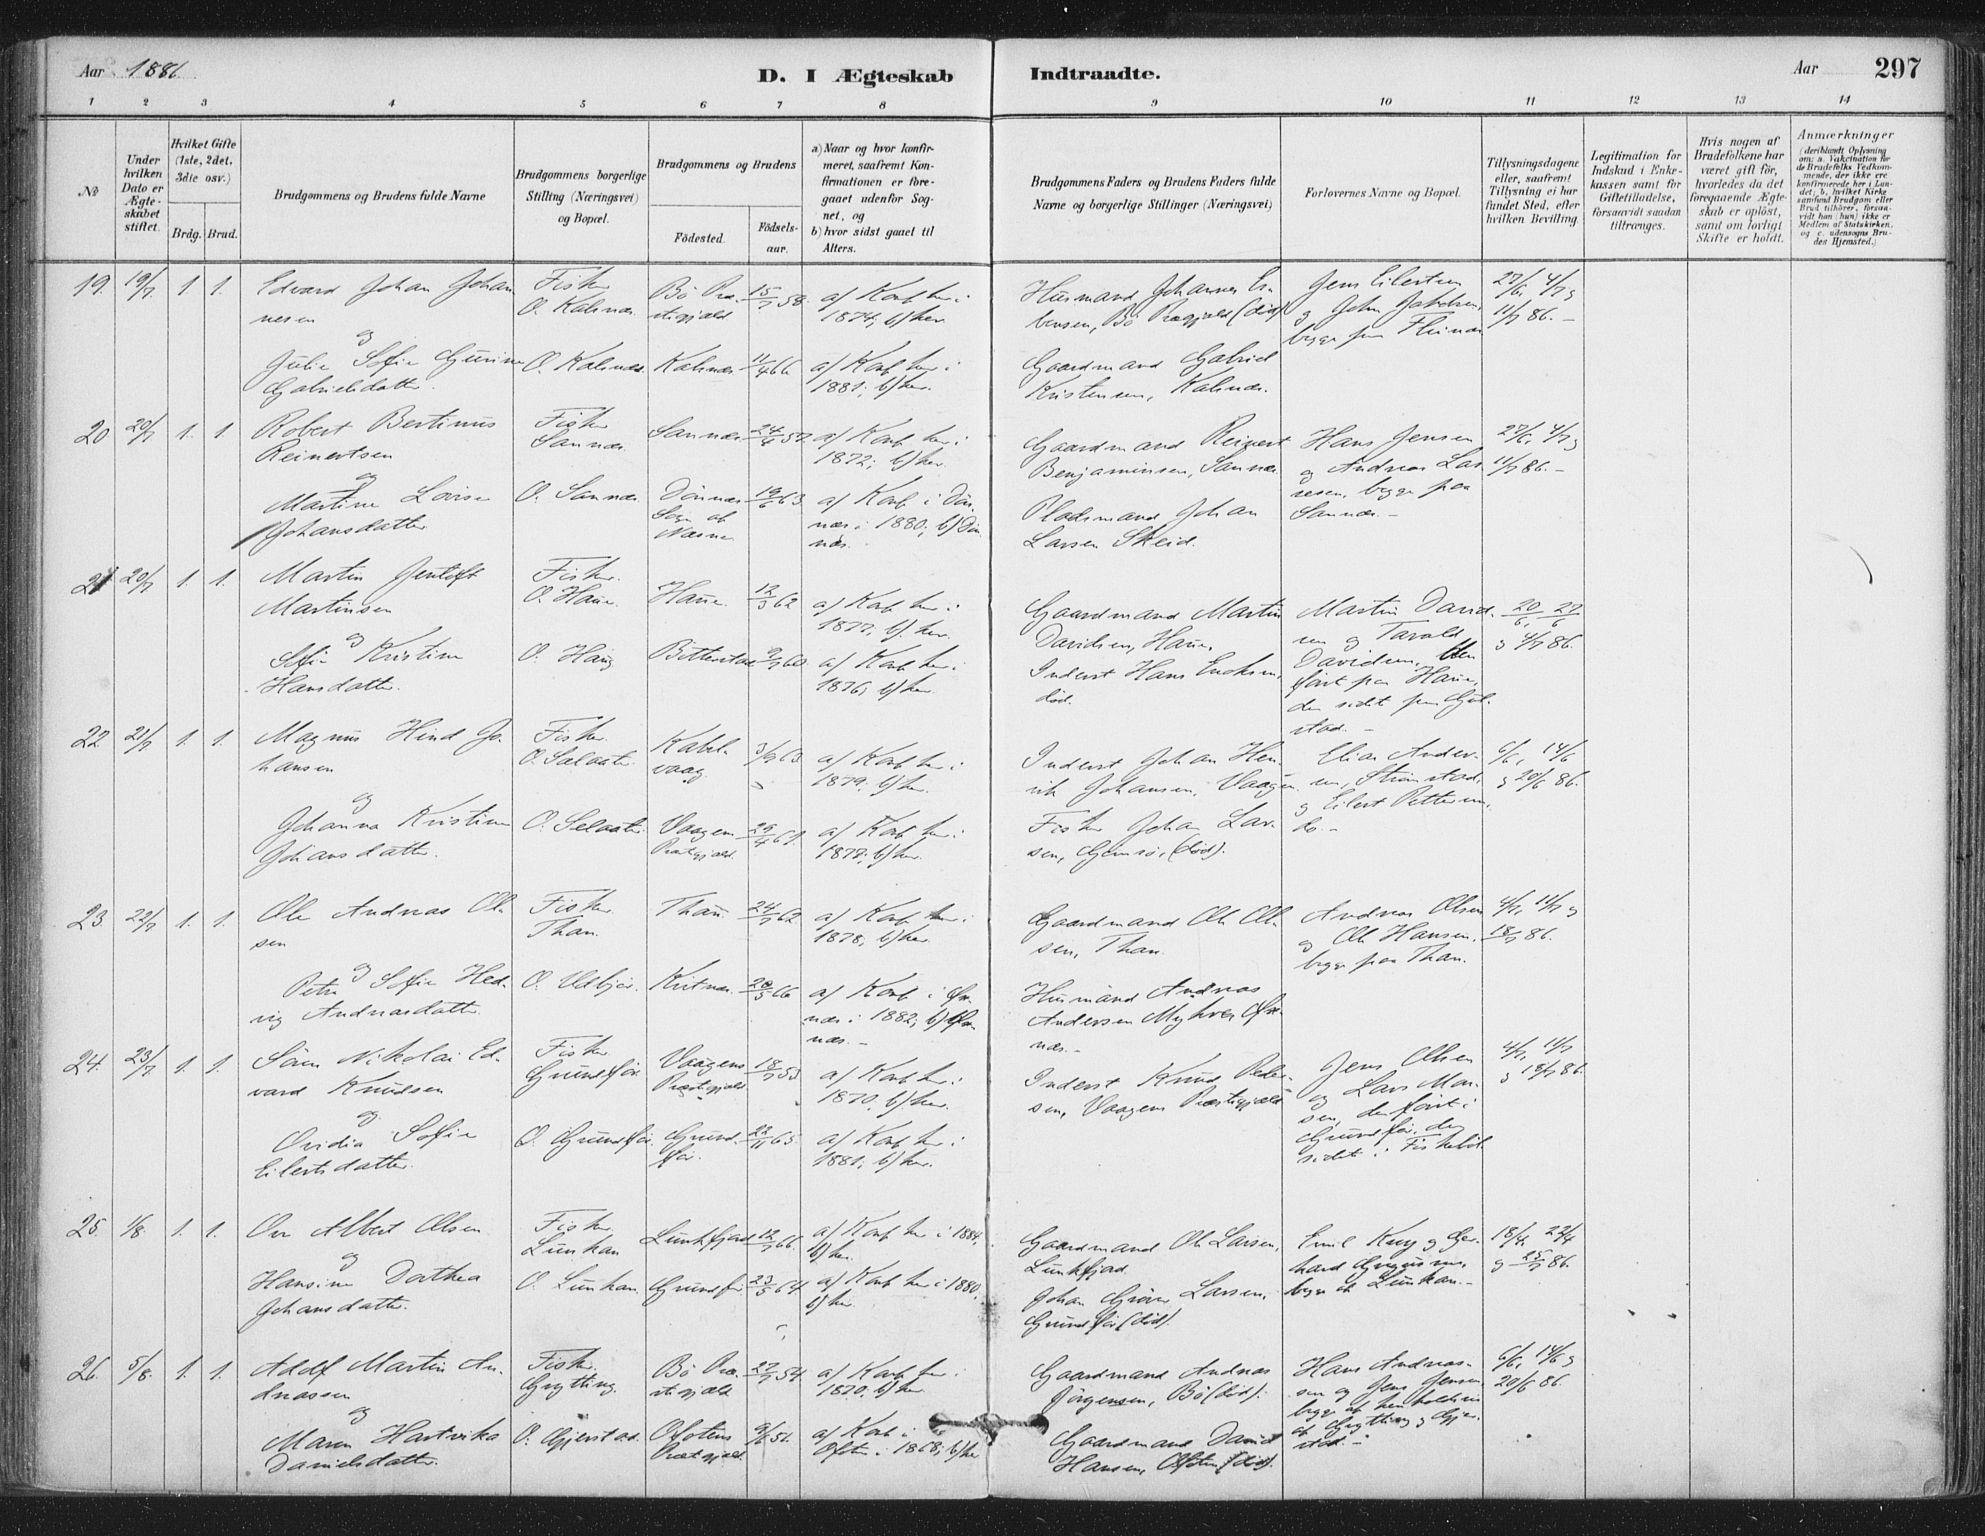 Aar 1886.
D. I Ægteskab Indtraadte.
Aar 297
1 2 3 4 5 6 7 8 9 10 11 12 13 14
No
Under hvilken Dato er Ægteskabet stiftet.
Hvilket Gifte (1ste, 2det, 3die osv.)
Brdg. Brud.
Brudgommens og Brudens fulde Navne
Brudgommens borgerlige Stilling (Næringsvei) og Bopæl.
Brudgommens og Brudens
Fødested. Fødselsaar.
a) Naar og hvor konfirmeret, saafremt Konfirmationen er foregaaet udenfor Sognet, og
b) hvor sidst gaaet til Alters.
Brudgommens Faders og Brudens Faders fulde Navne og borgerlige Stillinger (Næringsvei)
Forlovernes Navne og Bopæl.
Tillysningsdagene eller, saafremt Tillysning ei har fundet Sted, efter hvilken Bevilling.
Legitimation for Indskud i Enkekassen samt for Giftetilladelse, forsaavidt saadan tiltrænges.
Hvis nogen af Brudefolkene har været gift før, hvorledes da det foregaaende Ægteskab er opløst, samt om lovligt Skifte er holdt.
Anmærkninger (deriblandt Oplysning om: a. Vakcination for de Brudefolks Vedkommende, der ikke ere konfirmerede her i Landet; b. hvilket Kirkesamfund Brudgom eller Brud tilhører, forsaavidt han (hun) ikke er Medlem af Statskirken, og c. udensogns Brudes Hjemsted.)
19. 19/7 1 1. Edvard Johan Johannesen Fisker O. Kalsnæs Bö Præstegjæld 15/7 58. a) Konf. her i 1874; b) her
Husmand Johannes Esbensen, Bö Prægjæld (död) Jens Eilertsen og John Jakobsen, begge paa 27/6, 4/7 og 11/7 86.
og
Julie Sofie Gurine Gabrielsdatter. O. Kalsnæs Kalsnæs 11/4 66 a) Konf. her i 1881; b) her.
Gaardmand Gabriel Kristensen, Kalsnæs.
20 20/7 1. 1 Robert Bertinus Reinertsen Fisker Sannæs. Sannæs 24/6 57. a) Konf. her i 1872; b) her.
Gaardmand Reinert Benjaminsen, Sannæs Hans Jensen og Andreas Larsen, begge paa Sannæs. 27/6, 4/7 og 11/7 86.
og
Martine Lovise Johansdatter O. Sannæs Dönnæs Sogn af Næsne 19/6 63 a) Konf. i Dönnæs i 1880; b) Dönnæs.
Pladsmand Johan Larsen Skeid.
21 20/7 1. 1. Martin Jentoft Martinsen Fisker. O. Haue. Haue. 12/3 62 a) Konf. her i 1877; b) her.
Gaardmand Martin Davidsen, Haue, Martin Davidsen og Tarald Davidsen, den först paa Haue, den sidst paa 20/6, 27/6 og 4/7 86.
og
Sofie Kristine Hansdatter. O. Haug 9/7 60. a) Konf. her i 1876; b) her
Inderst Hans Enoksen, död.
22 21/7 1. 1. Magnus Hind Johansen Fisker O. Kabelvaag 3/9 63 a) Konf. her i 1879; b) her.
Inderst Johan Henrik Johansen, Vaagen Elias Andersen, og Eilert Pettersen, do. 6/6, 14/6 og 20/6 86.
og
Johanna Kristine Johansdatter. O. Vaagen Præstegjæld. 29/4 61. a) Konf. her i 1877; b) her.
Fisker Johan Larsen, Gimsö, (död).
23 22/7 1. 1. Ole Andreas Olsen Fisker Than. Than. 24/7 62 a) Konf. her i 1878, b) her
Gaardmand Ole Olsen, Than. Andreas Olsen og Ole Hansen, begge paa Than. 4/7, 11/7 og 18/7 86.
og
Petra Sofie Hedvig Andreasdatter. O. 20/5 66 a) Konf. i i 1882; b)
Husmand Andreas Andersen
24. 23/7 1. 1. Sören Nikolai Edvard Knudsen Fisker Grundför. Vaagens Præstegjæld 18/7 53 a) Konf. her i 1870, b) her.
Inderst Knud Pedersen, Vaagens Præstegjæld Jens Olsen og Lars Marsen, den först i Grundför, den sidst i Fiskeböl 4/7, 11/7 og 18/7 86.
og
Ovidia Sofie Eilertsdatter. O. Grundför. Grundför. 22/11 65 a) Konf. her i 1881; b) her.
25. 1/8 1. 1. Ove Albert Olsen Fisker Lunkan Lunkfjord 12/7 66. a) Konf. her i 1884, b) her.
Gaardmand Ole Larsen, Lunkfjord. Emil og Gerhard begge af Lunkan. 18/4, 22/4 og 25/7 86.
og
Hansine Dorthea Johansdatter. O. Lunkan. Grundför 23/5 64 a) Konf. her i 1880, b) her
Johan Gröver Larsen, Grundför (död).
26. 5/8. 1. 1. Adolf Martin Andreassen Fisker. Grytting. Bö Præstegjæld 27/7 54. a) Konf. her i 1870, b) her
Gaardmand Andreas Jörgensen, Bö (död). Hans Andreassen og Jens Jensen, begge af Grytting og Gjerstad. 6/6, 14/6 og 20/6 86.
og
Maren Hartvika Danielsdatter. O. Gjerstad. Ofotens Præstegjæld. 9/6 51. a) Konf. i Ofoten i 1868; b) her
Gaardmand Daniel Hansen, Ofoten (död).